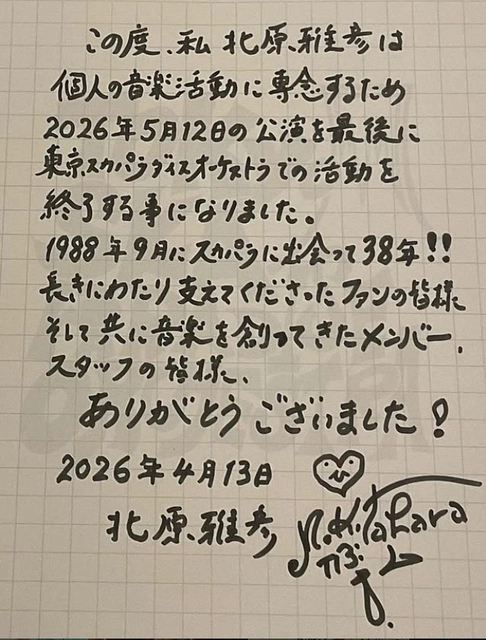 この度、私 北原雅彦は
個人の音楽活動に専念するため
2026年5月12日の公演を最後に
東京スカパラダイスオーケストラでの活動を
終了する事になりました。
1988年9月にスカパラに出会って38年!!
長きにわたり支えてくださったファンの皆様
そして共に音楽を創ってきたメンバー、
スタッフの皆様、
ありがとうございました!
2026年4月13日
北原雅彦
M.Kitahara